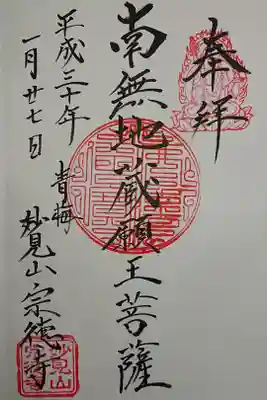 奉拝
南無地蔵願王菩薩
平成三十年
一月廿七日
青梅
妙見山宗徳寺